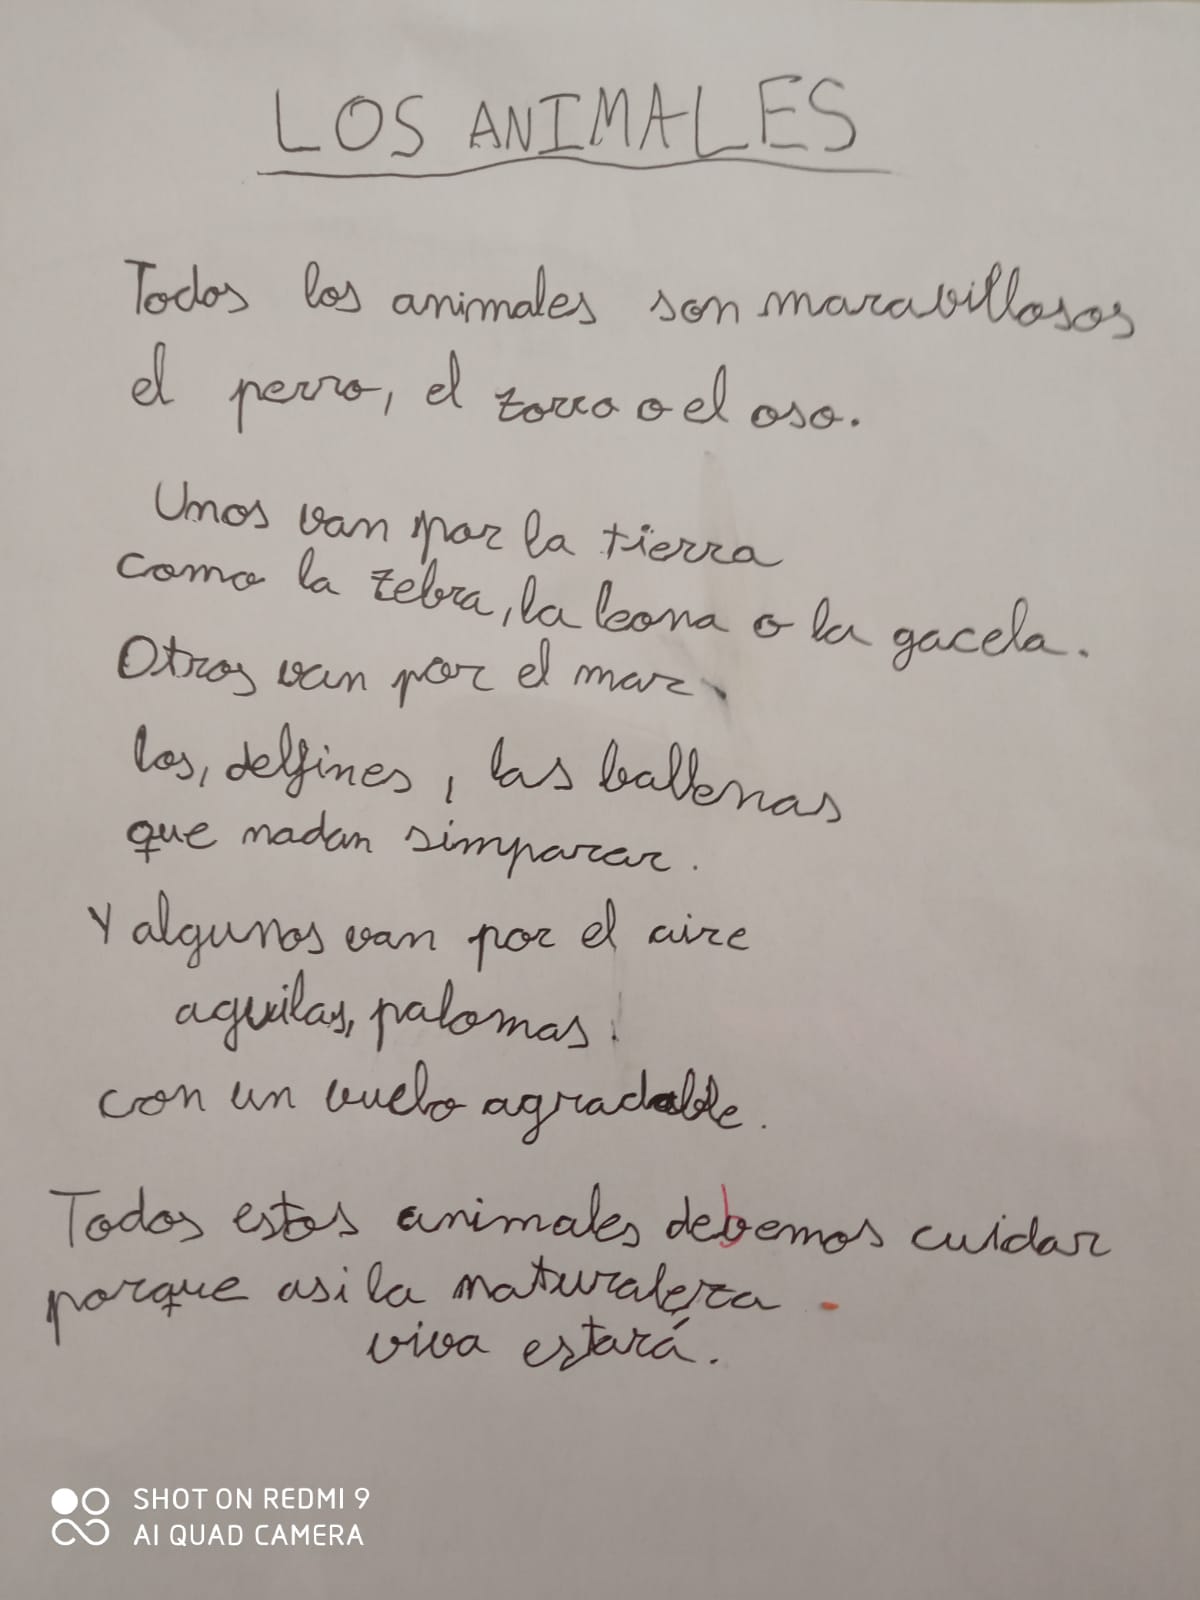 LOS ANIMALES
Todos los animales son maravillosos
el perro, el zorro o el oso.
Unos van por la tierra
como la zebra, la leona o la gacela.
Otros van por el mar
los, delfines, las ballenas
que nadan simparar.
Y algunos van por el aire
aguilas, palomas.
con un vuelo agradable.
Todos estos animales debemos cuidar
porque asi la naturaleza
viva estará.
SHOT ON REDMI 9
AI QUAD CAMERA